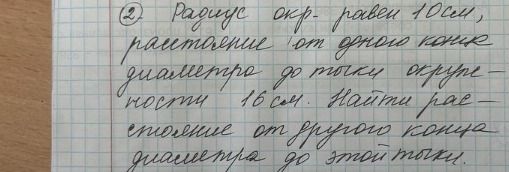 ② Радиус окр. равен 10см,
расстояние от одного конца
диаметра до тчки окруж-
ности 16 см. Найти рас-
стояние от другого конца
диаметра до этой тчки.